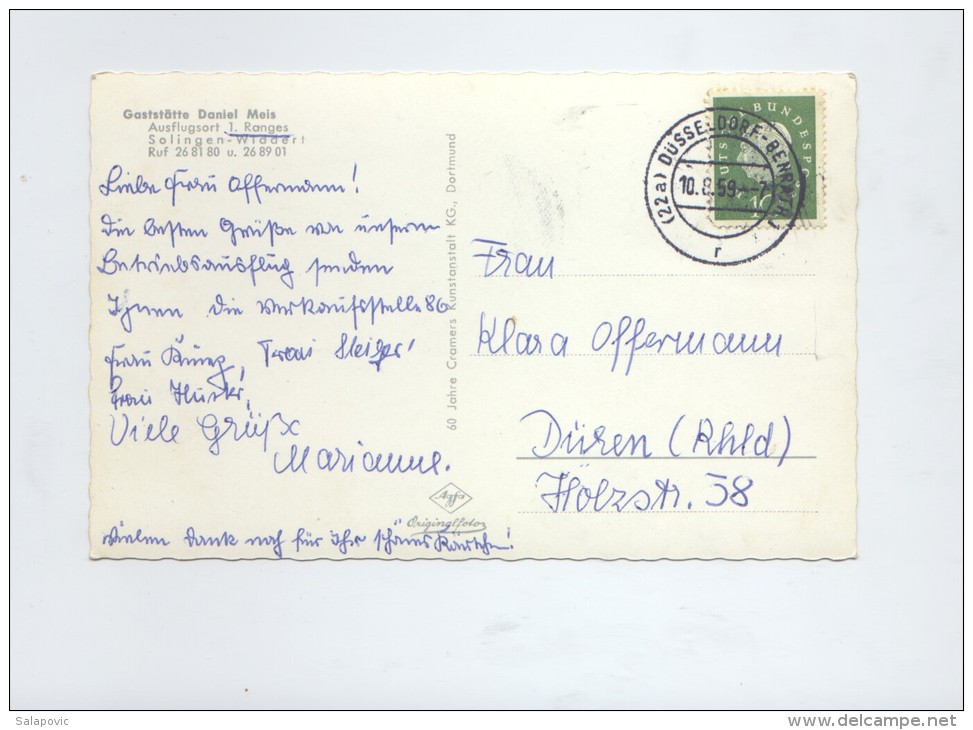 Gaststätte Daniel Meis
Ausflugsort 1. Ranges
Solingen-Widdert
Ruf 26 81 80 u. 26 89 01
Liebe Frau Offermann!
Die besten Grüße von unserem
Betriebsausflug senden
Ihnen die Verkaufsstelle 86
Frau Künz, Frau
Frau
Viele Grüße
Marianne.
Vielen Dank noch für Ihr schönes Kärtchen!
60 Jahre Cramers Kunstanstalt KG., Dortmund
Agfa
Originalfoto
DEUTSCHE BUNDESPOST
10
(22a) DÜSSELDORF-BENRATH
10.8.59.--7
r
Frau
Klara Offermann
Düren (Rhld)
Holzstr. 38
Salapovic
www.delcampe.net